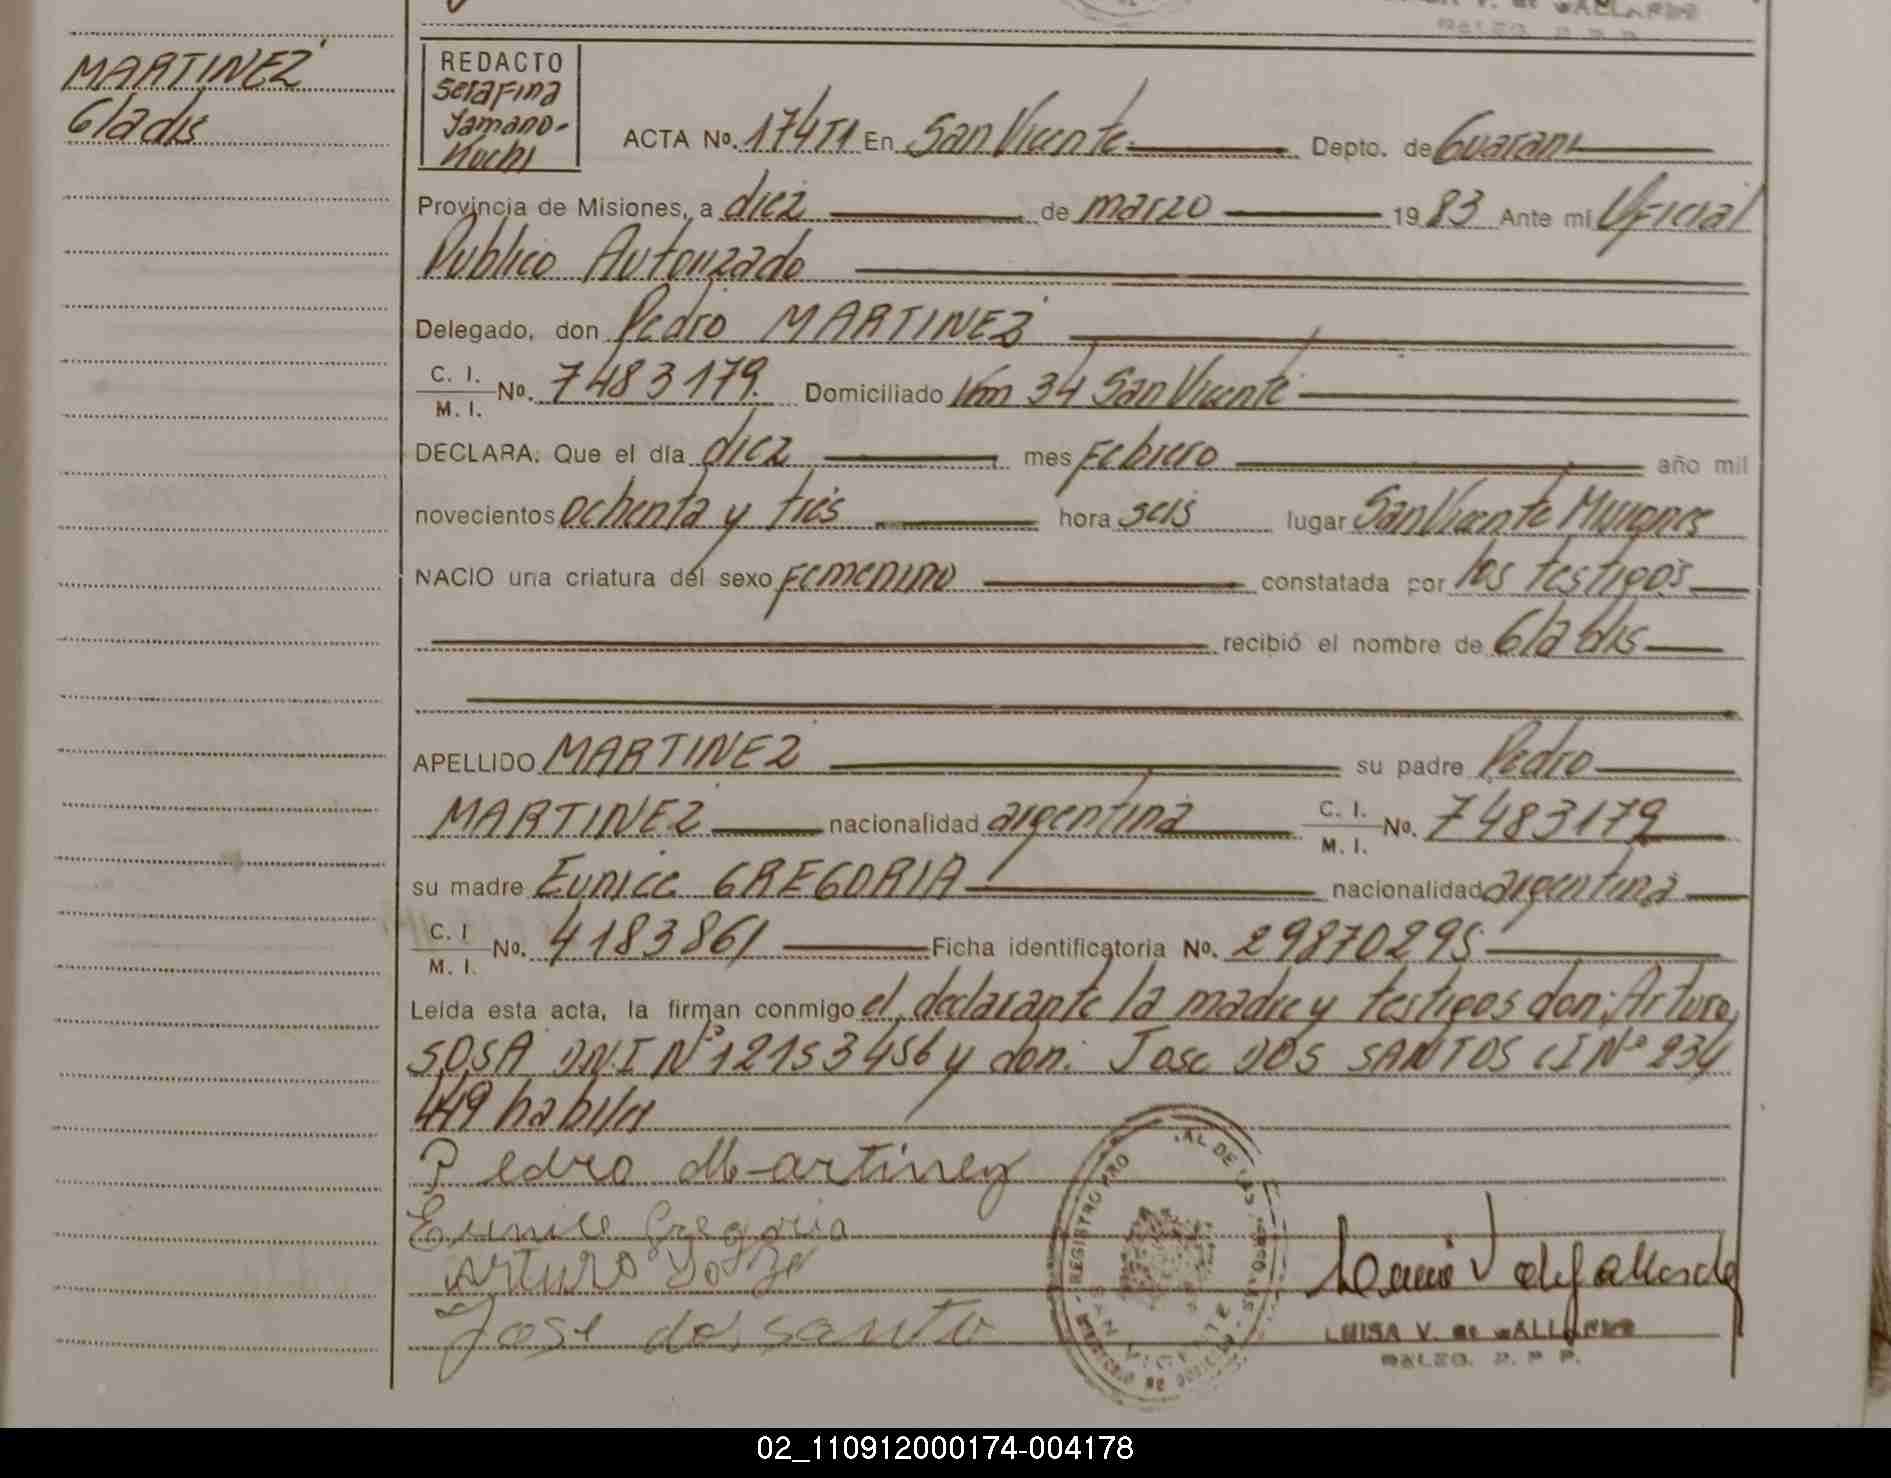 MARTINEZ
Gladis
REDACTO
Serafina
Yamano-
Kochi
ACTA No. 174T1 En San Vicente Depto. de Guarani
Provincia de Misiones, a diez de marzo 1983 Ante mi Oficial
Publico Autorizado
Delegado, don Pedro MARTINEZ
C. I.
M. I. No. 7483179. Domiciliado Km 34 San Vicente
DECLARA: Que el día diez mes Febrero año mil
novecientos ochenta y tres hora seis lugar San Vicente Misiones
NACIO una criatura del sexo Femenino constatada por los testigos
recibió el nombre de Gladis
APELLIDO MARTINEZ su padre Pedro
MARTINEZ nacionalidad argentina C. I.
M. I. No. 7483179
su madre Eunice GREGORIA nacionalidad argentina
C. I
M. I. No. 4183861 Ficha identificatoria No. 29870295
Leída esta acta, la firman conmigo el declarante la madre y testigos don: Arturo
SOSA D.N.I Nº 12153456 y don: Jose DOS SANTOS CI Nº 234
449 habiles
Pedro Martinez
Eunice Gregoria
Arturo
Jose dos santo
REGISTRO PRO AL DE LAS PERSONAS
SAN VICENTE
LUISA V. de GALLARDO
DELEG. R. P. P.
02_110912000174-004178